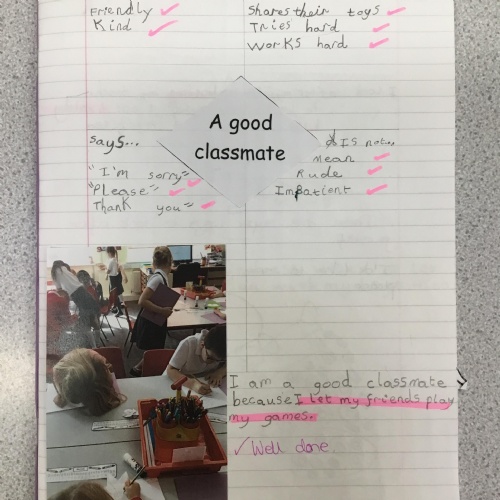 Friendly
Kind
Shares their toys
Tries hard
Works hard
A good
classmate
says...
"I'm sorry"
"Please"
Thank you"
Is not..
Mean
Rude
Impatient
I am a good classmate
because I let my friends play
my games.
Well done